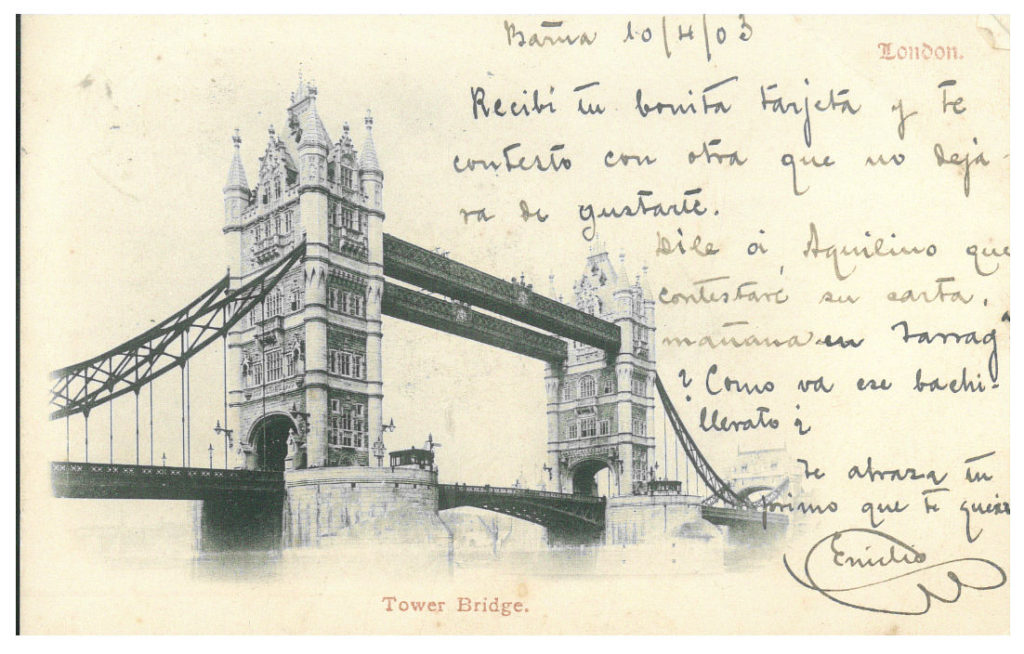 Barna 10/4/03
London.
Recibí tu bonita tarjeta y te
contesto con otra que no deja-
ra de gustarte.
Dile á Aquilino que
contestaré su carta,
mañana en Tarrag
¿Como va ese bachi-
llerato?
Te abraza tu
primo que te quier
Emilio
Tower Bridge.